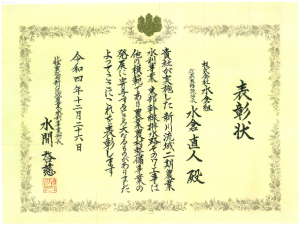 表彰状
株式会社水倉組
代表取締役社長 水倉直人 殿
貴社が実施した新川流域二期農業
水利事業
工事は
他の模範であり農業農村整備事業の
発展に寄与するところ大なるものがありました
よってここにこれを表彰します
令和四年十二月二十六日
水間啓慈